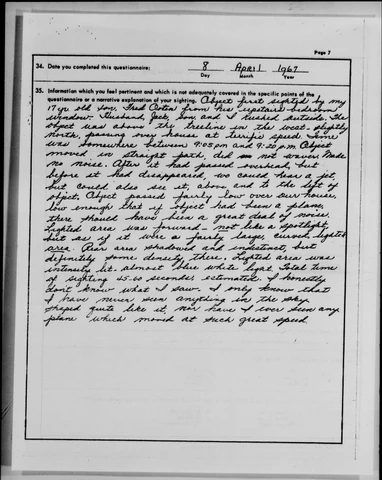 Page 7
34. Date you completed this questionnaire: 8 April 1967
Day Month Year
35. Information which you feel pertinent and which is not adequately covered in the specific points of the
questionnaire or a narrative explanation of your sighting. Object first sighted by my
17 yr old son, Fred from his upstairs bedroom
window. Husband, Jack, son and I rushed outside. The
object was above the treeline in the west - slightly
north, passing over house at terrific speed. Time
was somewhere between 9:05 pm and 9:20 pm. Object
moved in straight path, did not waver. Made
no noise. After it had passed overhead, but
before it had disappeared, we could hear a jet,
but could also see it, above and to the left of
object. Object passed fairly low over our house,
low enough that if object had been a plane,
there should have been a great deal of noise.
Lighted area was forward - not like a spotlight,
but as if it were a fairly large, curved, lighted
area. Rear area shadowed and indistinct, but
definitely some density there. Lighted area was
intensely lit - almost blue white light. Total time
of sighting 45-60 seconds estimated. I honestly
don't know what I saw. I only know that
I have never seen anything in the sky
shaped quite like it, nor have I ever seen any
plane which moved at such great speed